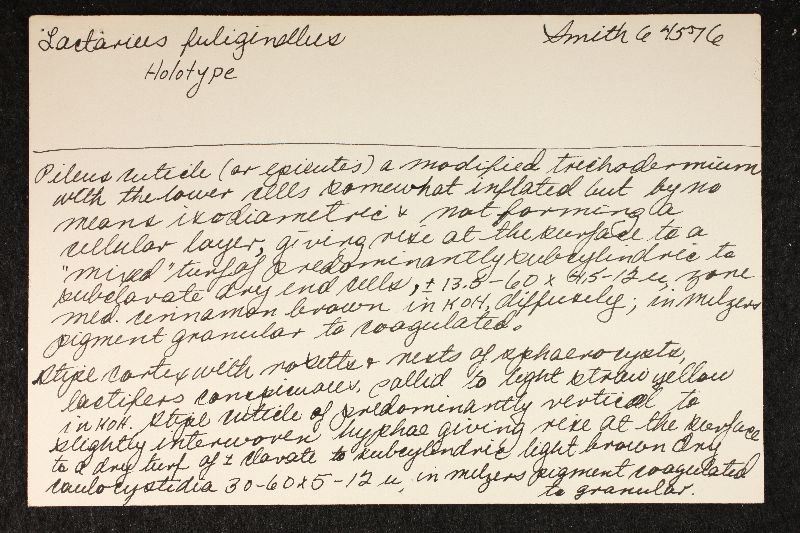 Lactarius fuliginellus Smith 64576
Holotype
Pileus cuticle (or epicutis) a modified trichodermium
with the lower cells somewhat inflated but by no
means isodiametric & not forming a
cellular layer, giving rise at the surface to a
"mixed" turf of predominantly subcylindric to
subclavate dry end cells, ± 13.5-60 x 4.5-12 u, zone
med. cinnamon brown in KOH, diffusely; in melzers
pigment granular to coagulated.
Stipe cortex with rosetts & nests of sphaerocysts,
lactifers conspicuous, pallid to light straw yellow
in KOH. Stipe cuticle of predominantly vertical to
slightly interwoven hyphae giving rise at the surface
to a dry turf of ± clavate to subcylindric light brown dry
caulocystidia 30-60x5-12 u, in melzers pigment coagulated
to granular.